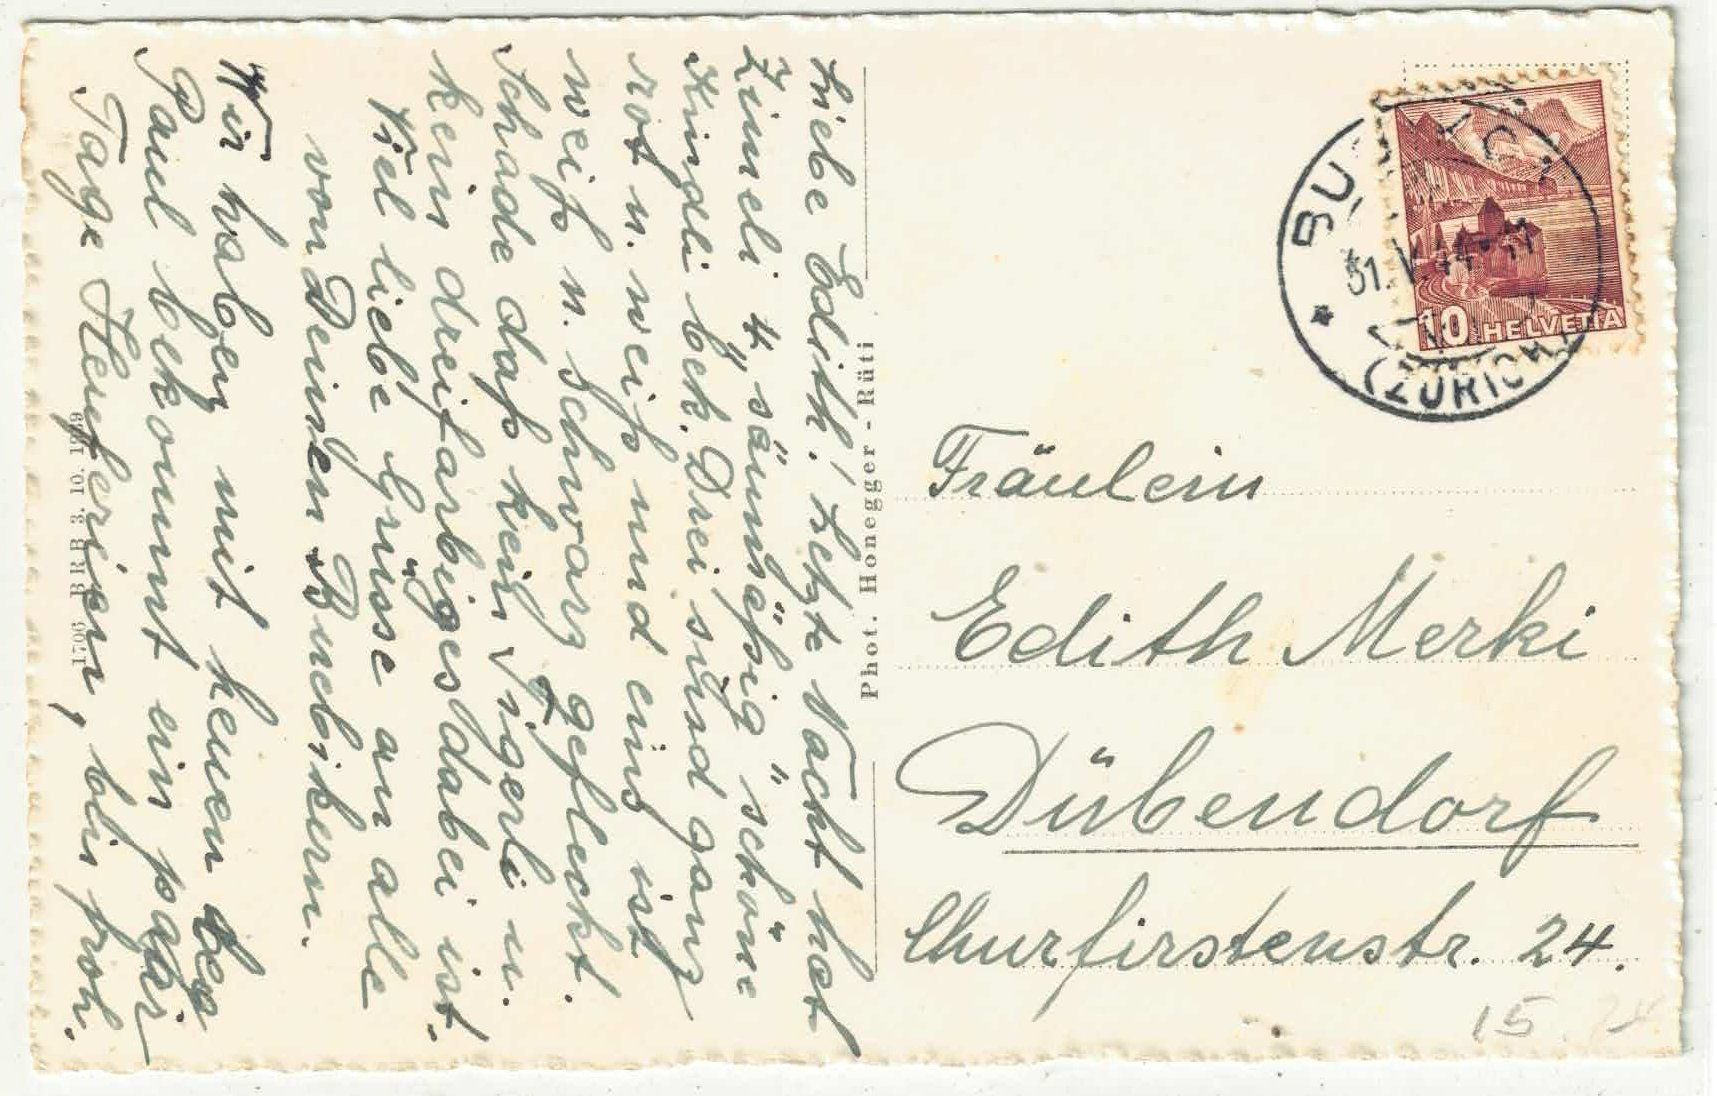 Liebe Edith! Letzte Nacht hat
Zimeli 4 „säumäßig" schöne
Kindli bek. Drei sind ganz
rot u. weiß und eins ist
weiß u. schwarz gefleckt.
Schade daß kein Nigerli u.
kein dreifarbiges dabei ist.
Viel liebe Grüsse an alle
von Deinen Bubikern.
Wir haben mit heuen beg
Paul bekommt ein paar
Tage Heuferien, bin froh.
1706 BRB 3. 10. 1939
Phot. Honegger - Rüti
BU
31. V. 44
(ZÜRICH)
10 HELVETIA
Fräulein
Edith Merki
Dübendorf
Churfirstenstr. 24.
15